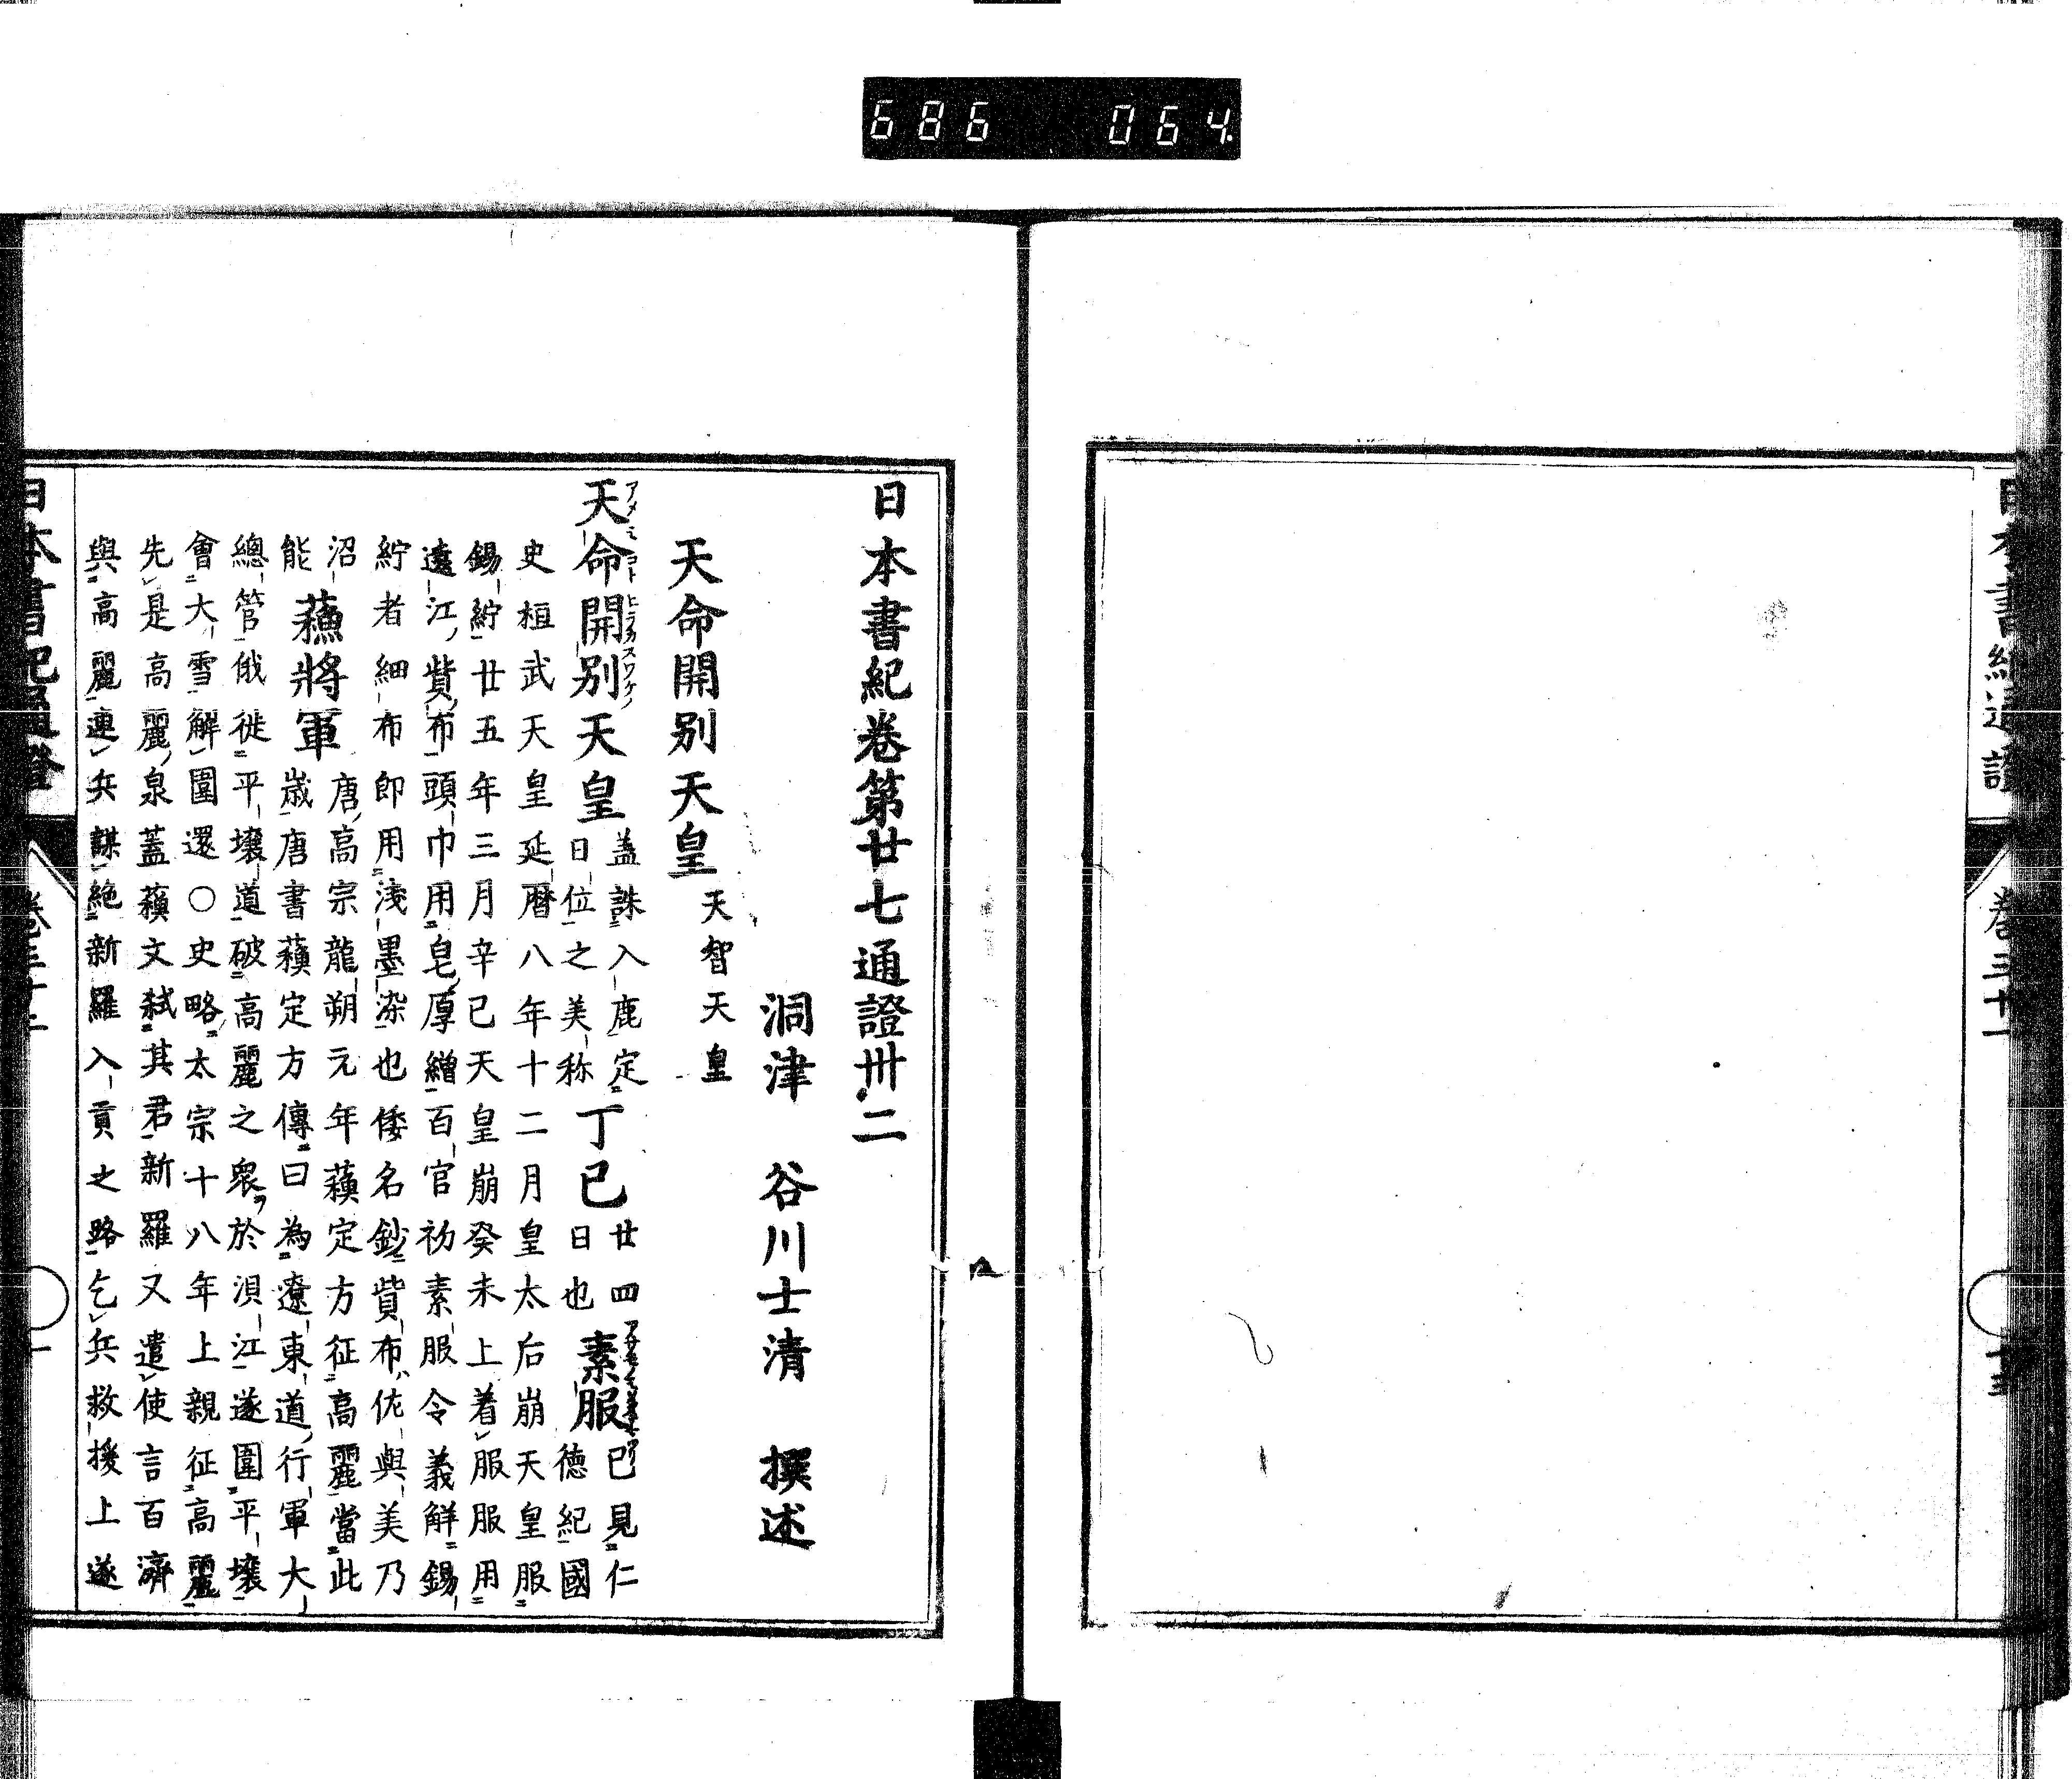 686 064
日本書紀通證
卷三十一
日本書紀卷第廿七通證卅二
洞津 谷川士清 撰述
天命開别天皇 天智天皇
天命開别天皇 蓋誅入鹿定
アメミコトヒラカスワケノ
日位之美称
丁巳 廿四
日也
素服 已見仁
德紀國
史桓武天皇延暦八年十二月皇太后崩天皇服
錫紵廿五年三月辛巳天皇崩癸未上着服服用
遠江貲布頭巾用皂厚繒百官初素服令義解錫
紵者細布即用淺墨染也倭名鈔貲布佐與美乃
沼 唐高宗龍朔元年蘓定方征高麗當此
能
蘓將軍
歳唐書蘓定方傳曰為遼東道行軍大
總管俄徙平壤道破高麗之衆於浿江遂圍平壤
會大雪解圍還○史略太宗十八年上親征高麗
先是高麗泉蓋蘓文弒其君新羅又遣使言百濟
與高麗連兵謀絶新羅入貢之路乞兵救援上遂
日本書紀通證